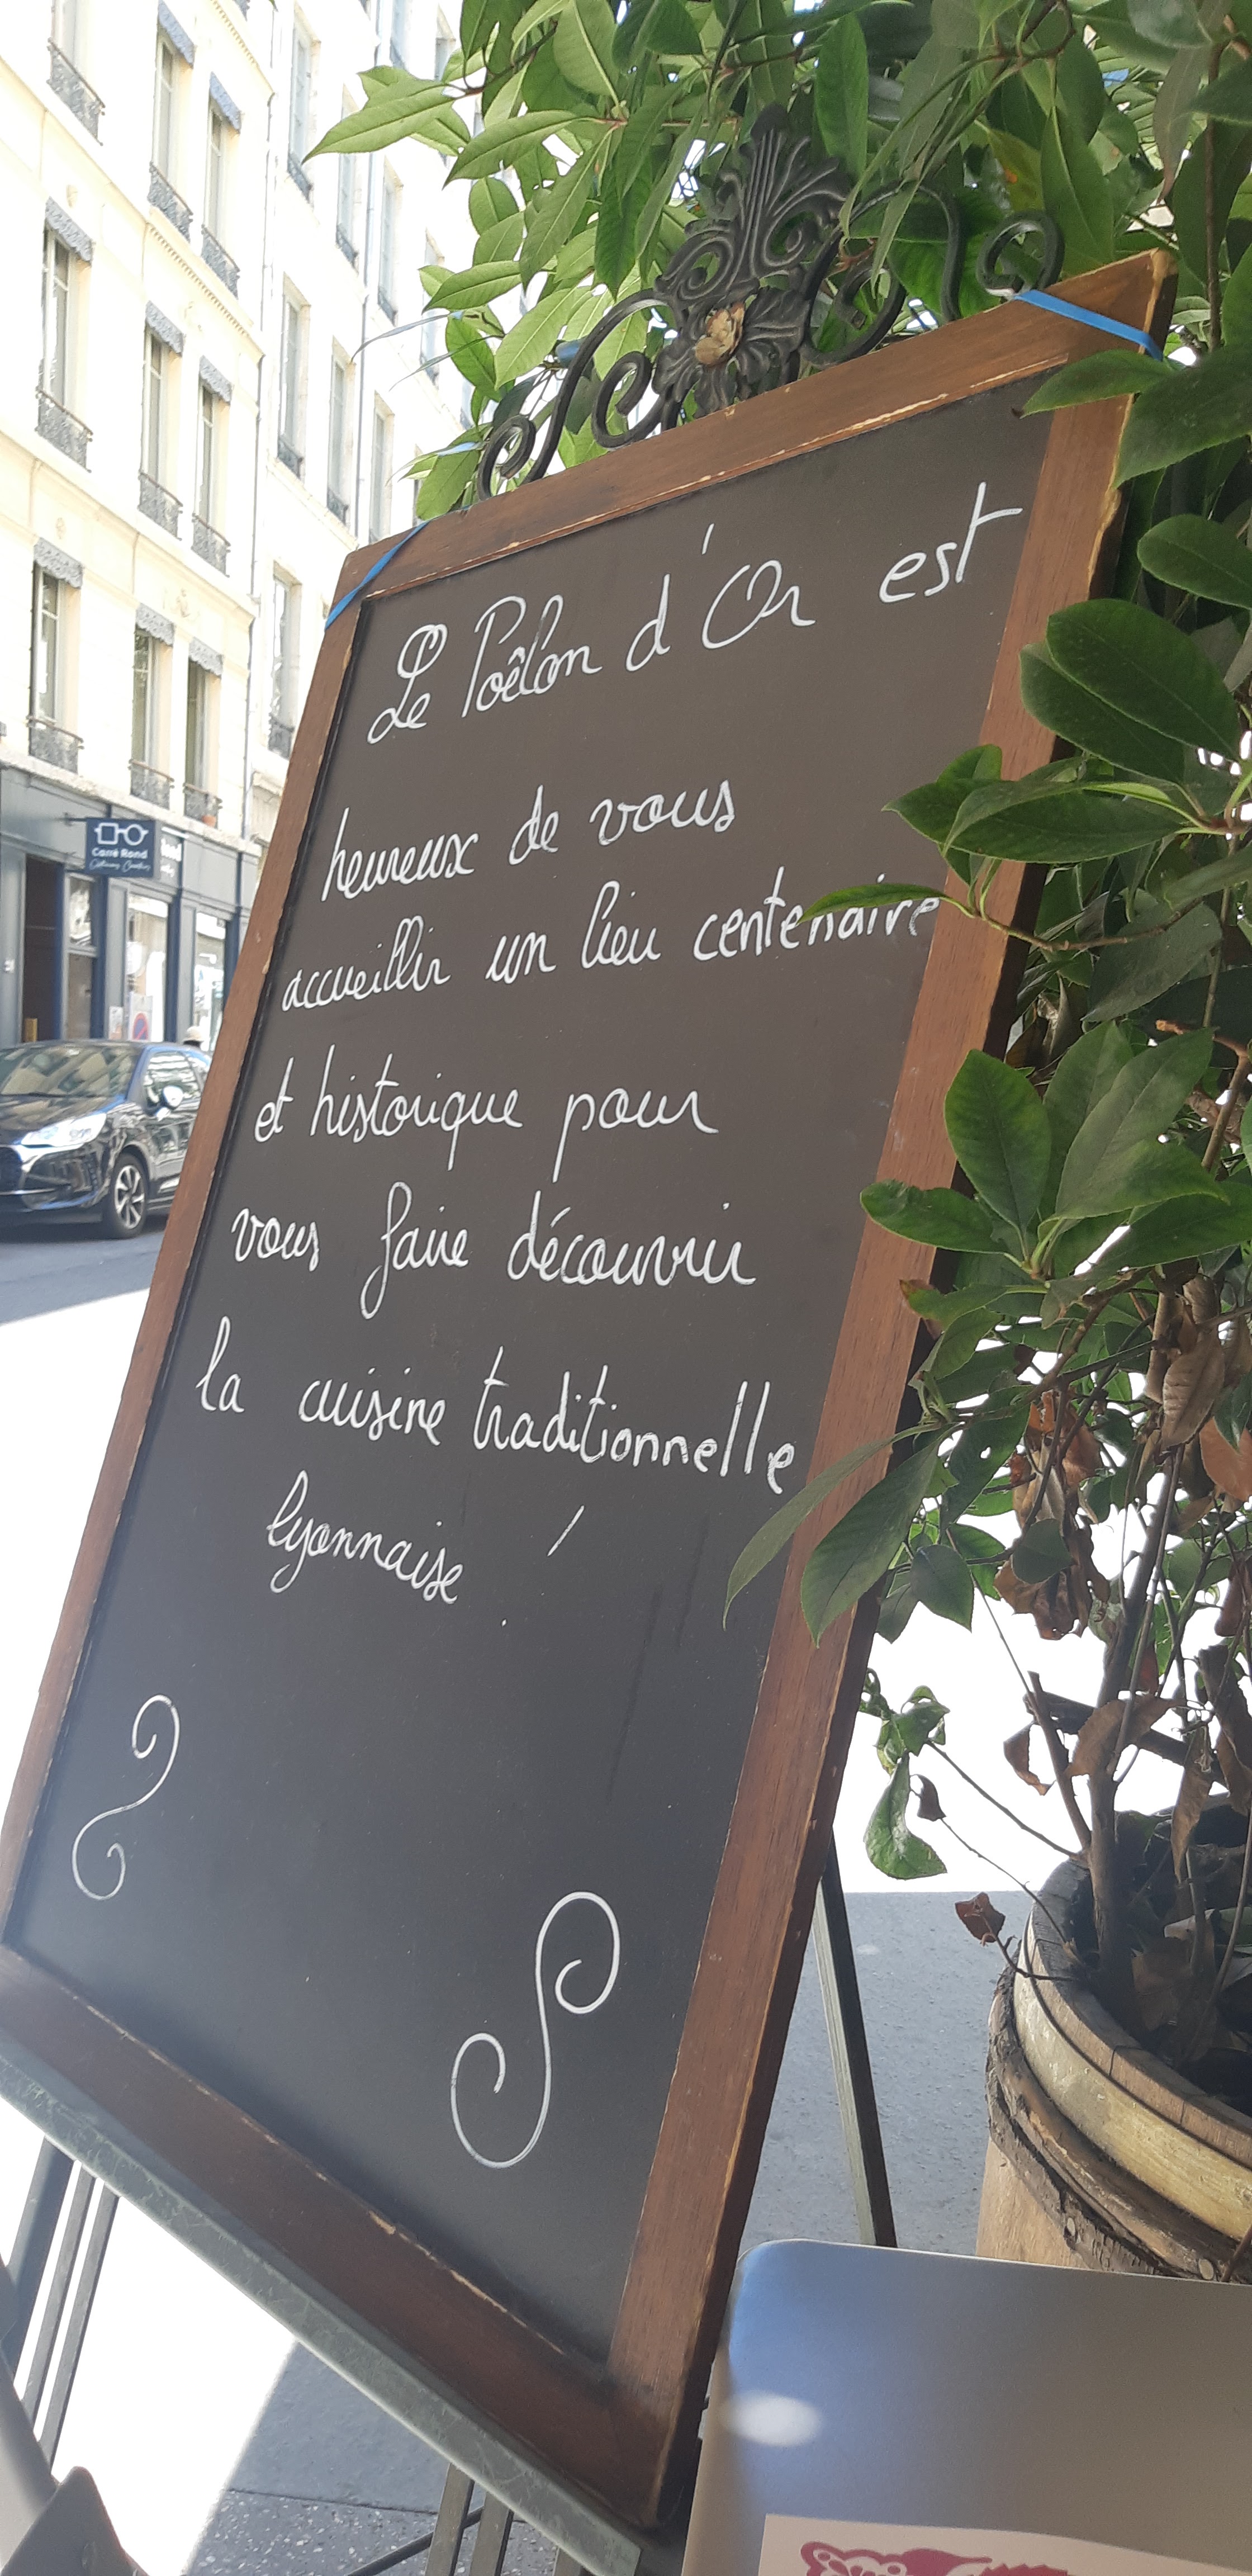 Le Poêlon d'Or est
heureux de vous
accueillir un lieu centenaire
et historique pour
vous faire découvrir
la cuisine traditionnelle
lyonnaise !
Carré Rond